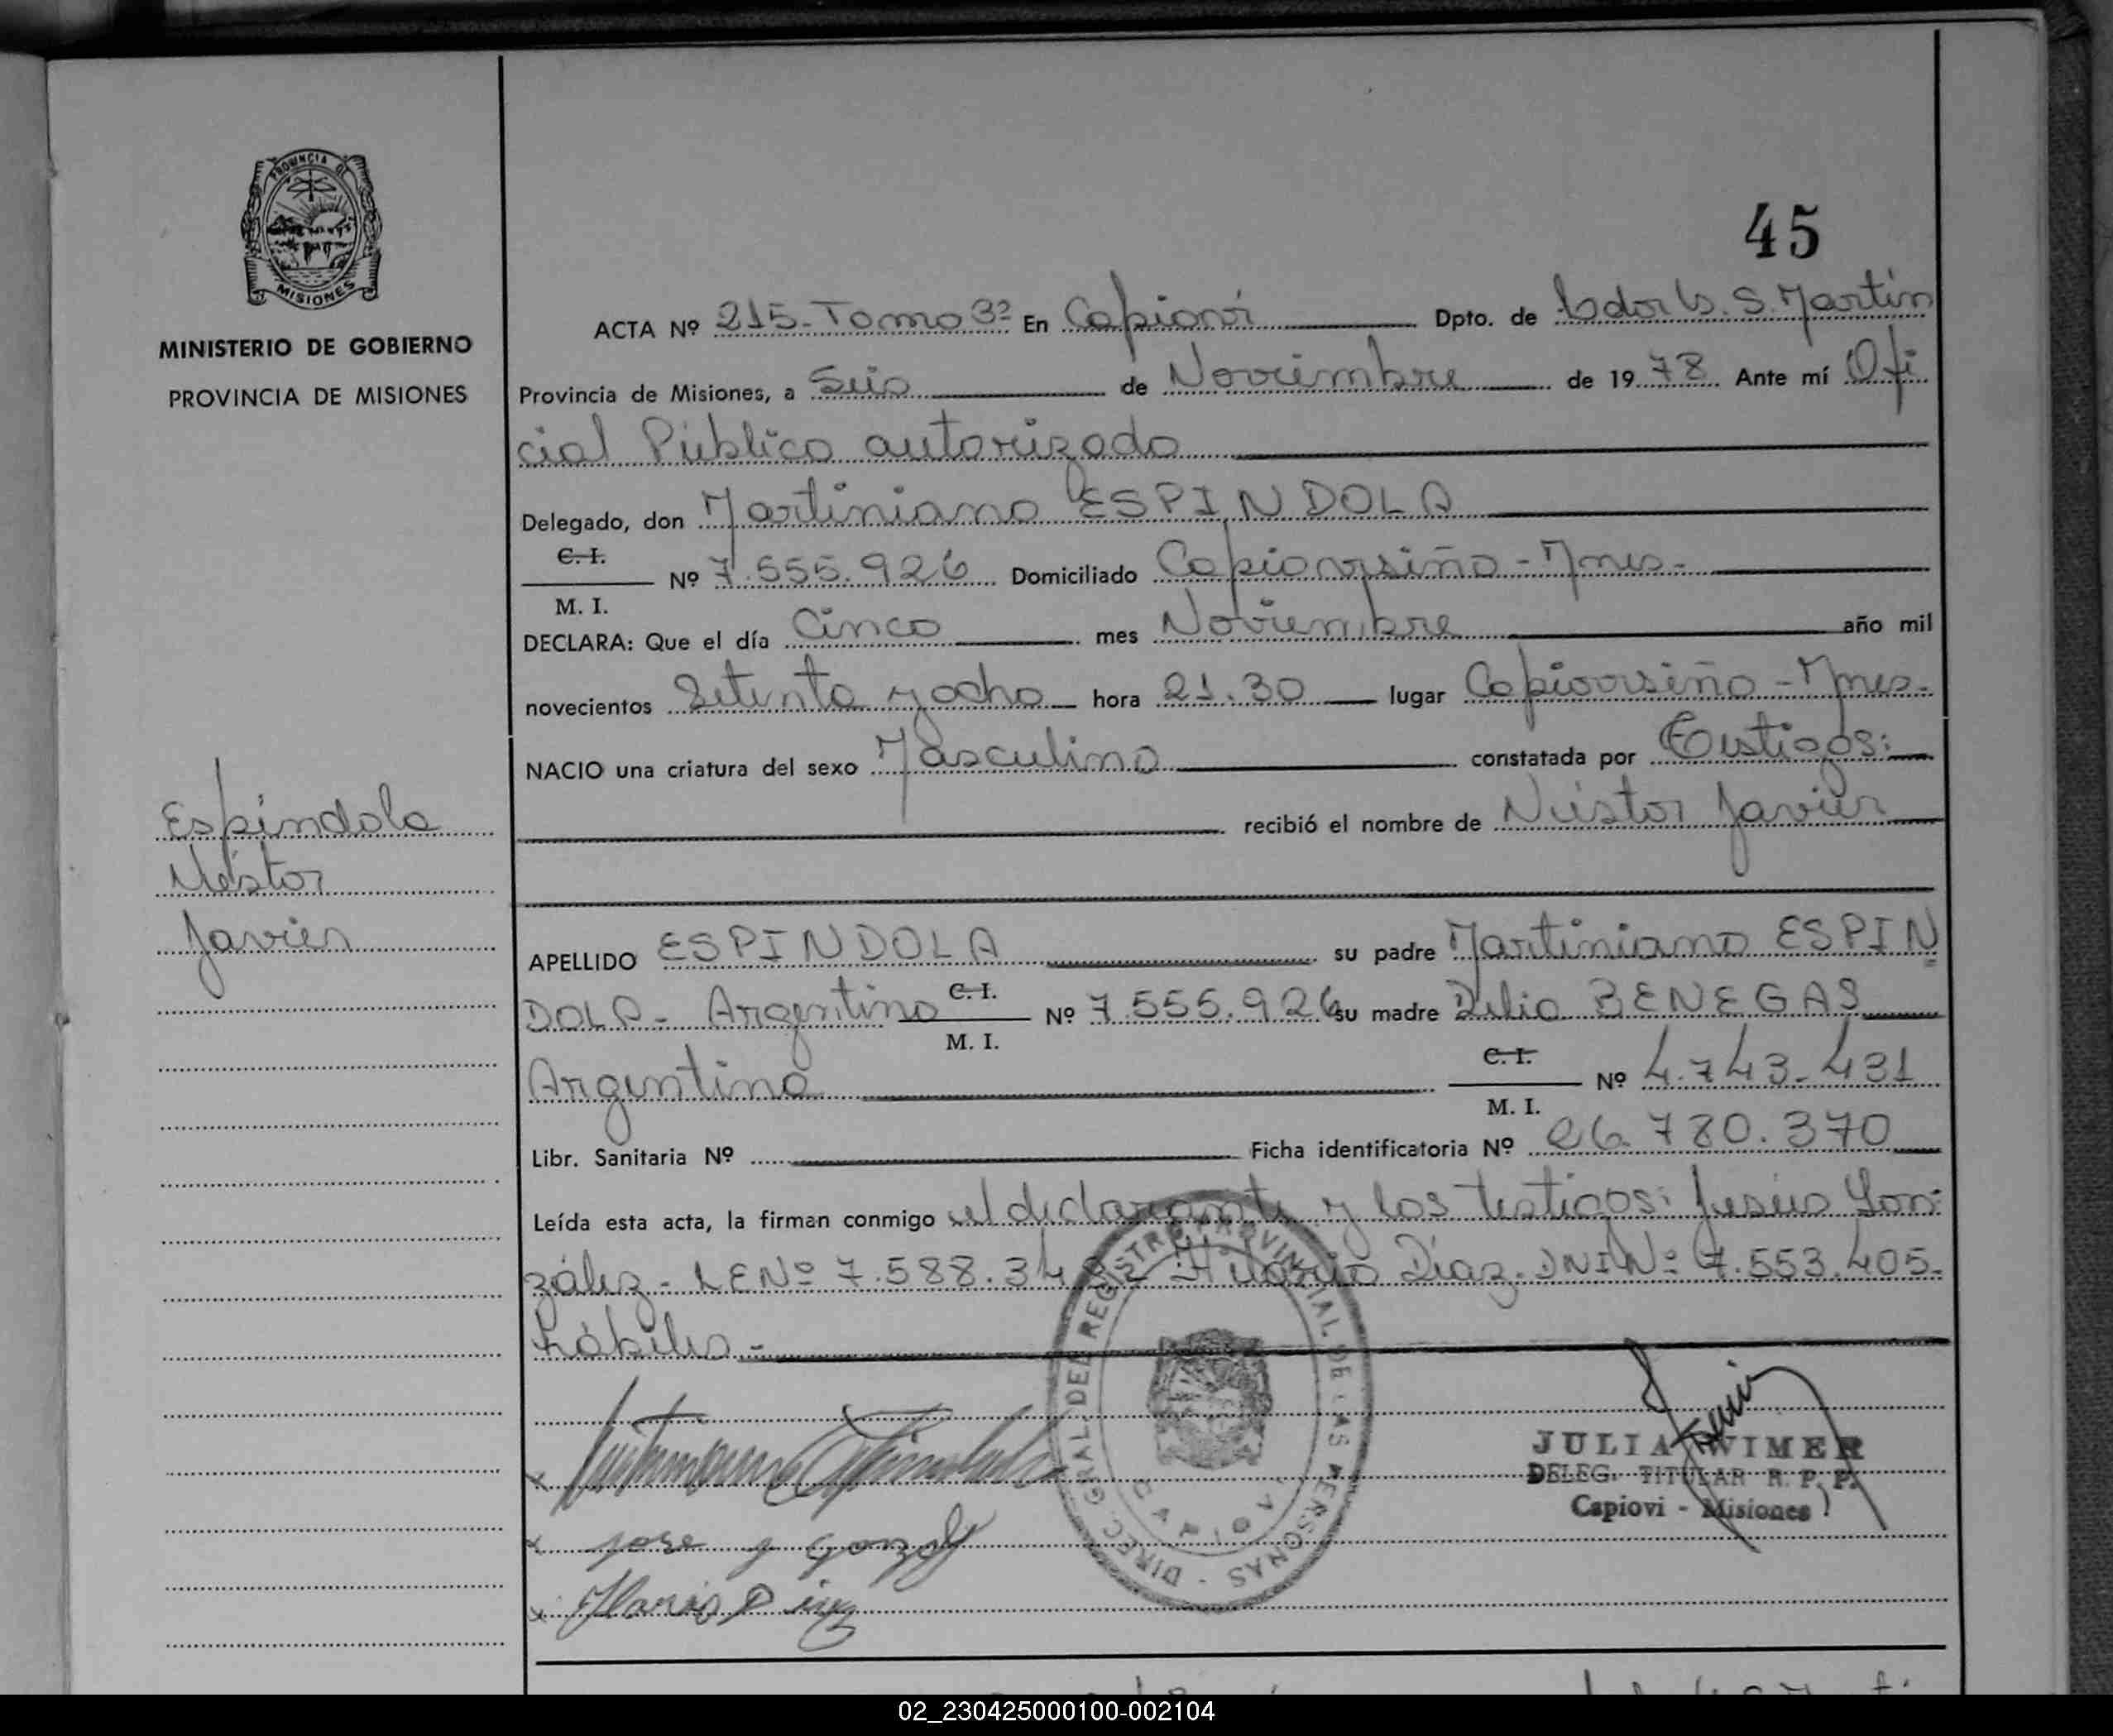 PROVINCIA DE
MISIONES
MINISTERIO DE GOBIERNO
PROVINCIA DE MISIONES
Espíndola
Néstor
Javier
45
ACTA Nº 215-Tomo 3º En Capioví Dpto. de Ldor G. S. Martín
Provincia de Misiones, a Seis de Noviembre de 1978 Ante mí Ofi
cial Público autorizado
Delegado, don Martiniano ESPINDOLA
C. I.
Nº 7.555.926 Domiciliado Capioviciño - Mnes-
M. I.
DECLARA: Que el día Cinco mes Noviembre año mil
novecientos Setenta y ocho hora 21.30 lugar Capioviciño - Mnes-
NACIO una criatura del sexo Masculino constatada por Testigos:
recibió el nombre de Néstor Javier
APELLIDO ESPINDOLA su padre Martiniano ESPIN
DOLA- Argentino C. I. Nº 7.555.926 su madre Delia BENEGAS
M. I.
Argentina C. I. Nº 4.743.431
M. I.
Libr. Sanitaria Nº Ficha identificatoria Nº 26.780.370
Leída esta acta, la firman conmigo el declarante y los testigos: Jesús Gon-
zález- LENº 7.588.34 Hilario Díaz. DNI Nº 7.553.405.
hábiles-
DIREC. GRAL. DEL REGISTRO PROVINCIAL DE LAS PERSONAS
CAPIOVI
JULIA WIMER
DELEG. TITULAR R. P. P.
Capiovi - Misiones
x Martiniano Espindola
x jose j gonzalez
x Ilario Diaz
02_230425000100-002104